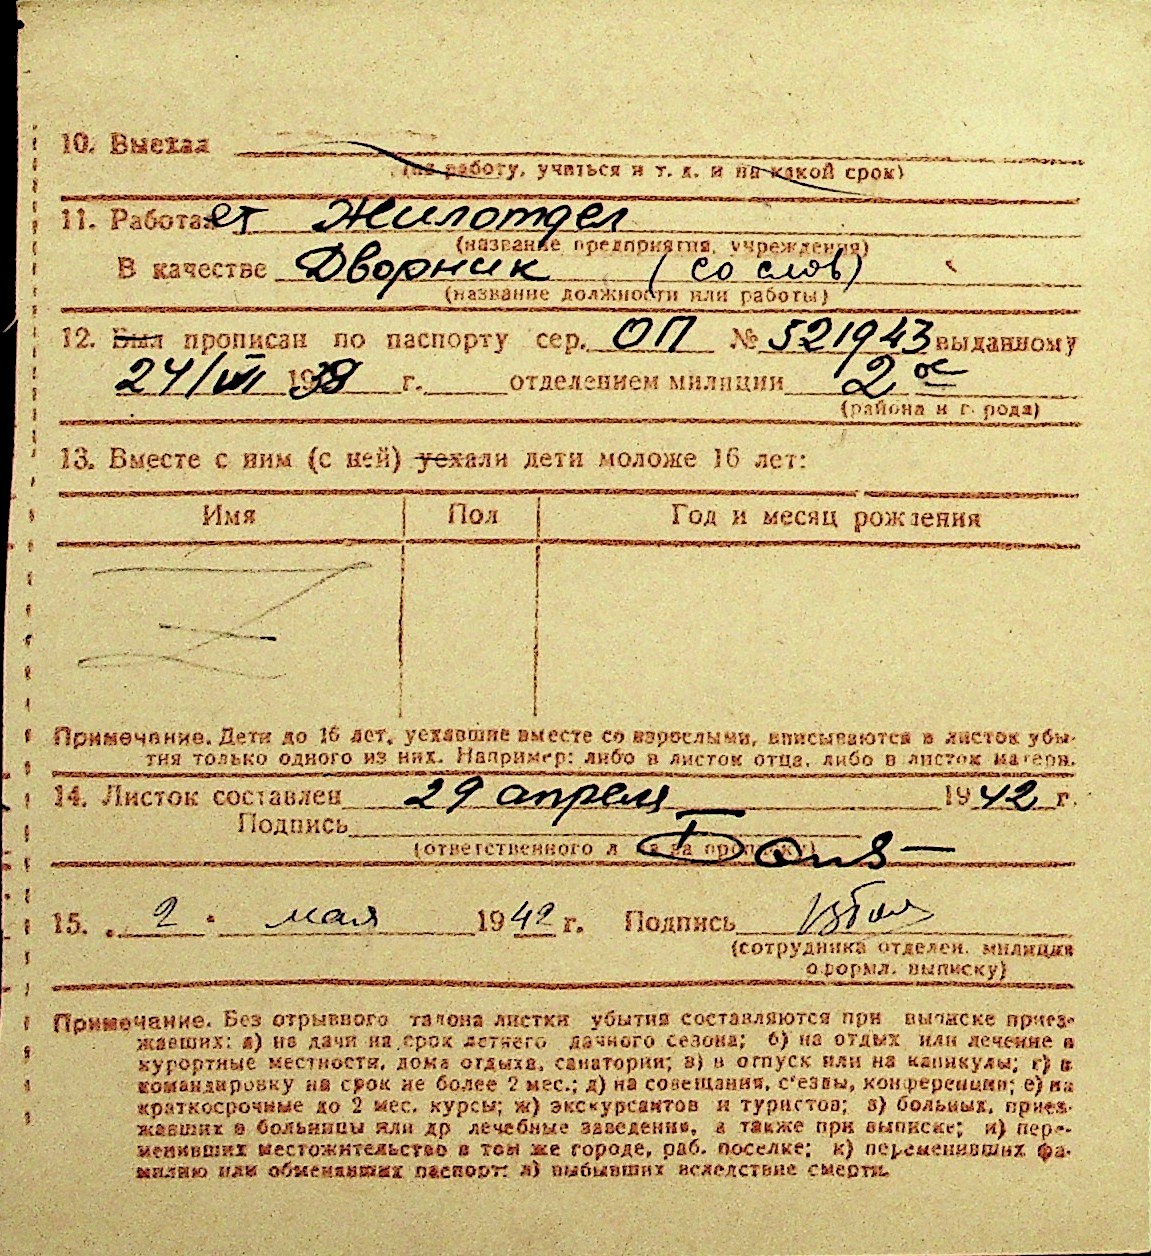 10. Выехал
(на работу, учиться и т. д. и на какой срок)
11. Работает Жилотдел
(название предприятия, учреждения)
В качестве Дворник (со слов)
(название должности или работы)
12. Был прописан по паспорту сер. ОП № 521943 выданному
24/VII 1938 г. отделением милиции 2ое
(района и г. рода)
13. Вместе с ним (с ней) уехали дети моложе 16 лет:
Имя Пол Год и месяц рождения
Примечание. Дети до 16 лет, уехавшие вместе со взрослыми, вписываются в листок убы-
тия только одного из них. Например: либо в листок отца, либо в листок матери.
14. Листок составлен 29 апреля 1942 г.
Подпись
(ответственного за прописку)
15. 2 мая 1942 г. Подпись
(сотрудника отделен. милиции
оформл. выписку)
Примечание. Без отрывного талона листки убытия составляются при выписке приез-
жавших: а) на дачи на срок летнего дачного сезона; б) на отдых или лечение в
курортные местности, дома отдыха, санатории; в) в отпуск или на каникулы; г) в
командировку на срок не более 2 мес.; д) на совещания, с'езды, конференции; е) на
краткосрочные до 2 мес. курсы; ж) экскурсантов и туристов; з) больных, приез-
жавших в больницы или др лечебные заведения, а также при выписке; и) пере-
менивших местожительство в том же городе, раб. поселке; к) переменивших фа-
милию или обменявших паспорт; л) выбывших вследствие смерти.